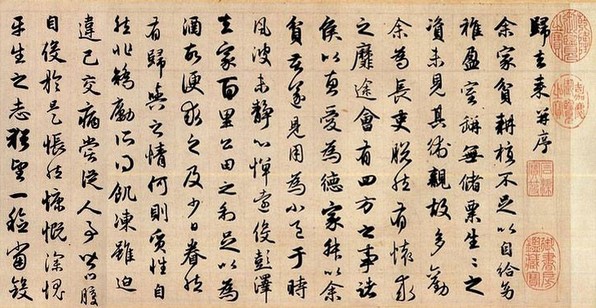 歸去來并序
余家貧耕植不足以自給幼
稚盈室缾無儲粟生生之
資未見其術親故多勸
余為長吏脫然有懷求
之靡途會有四方之事諸
侯以惠愛為德家叔以余
貧苦遂見用為小邑于時
風波未靜心憚遠役彭澤
去家百里公田之利足以為
酒故便求之及少日眷然
有歸與之情何則質性自
然非矯勵所得飢凍雖迫
違己交病嘗從人事皆口腹
自役於是悵然慷慨深愧
平生之志猶望一稔當斂
嘉慶御覽之寶
石渠寶笈
御書房鑑藏寶